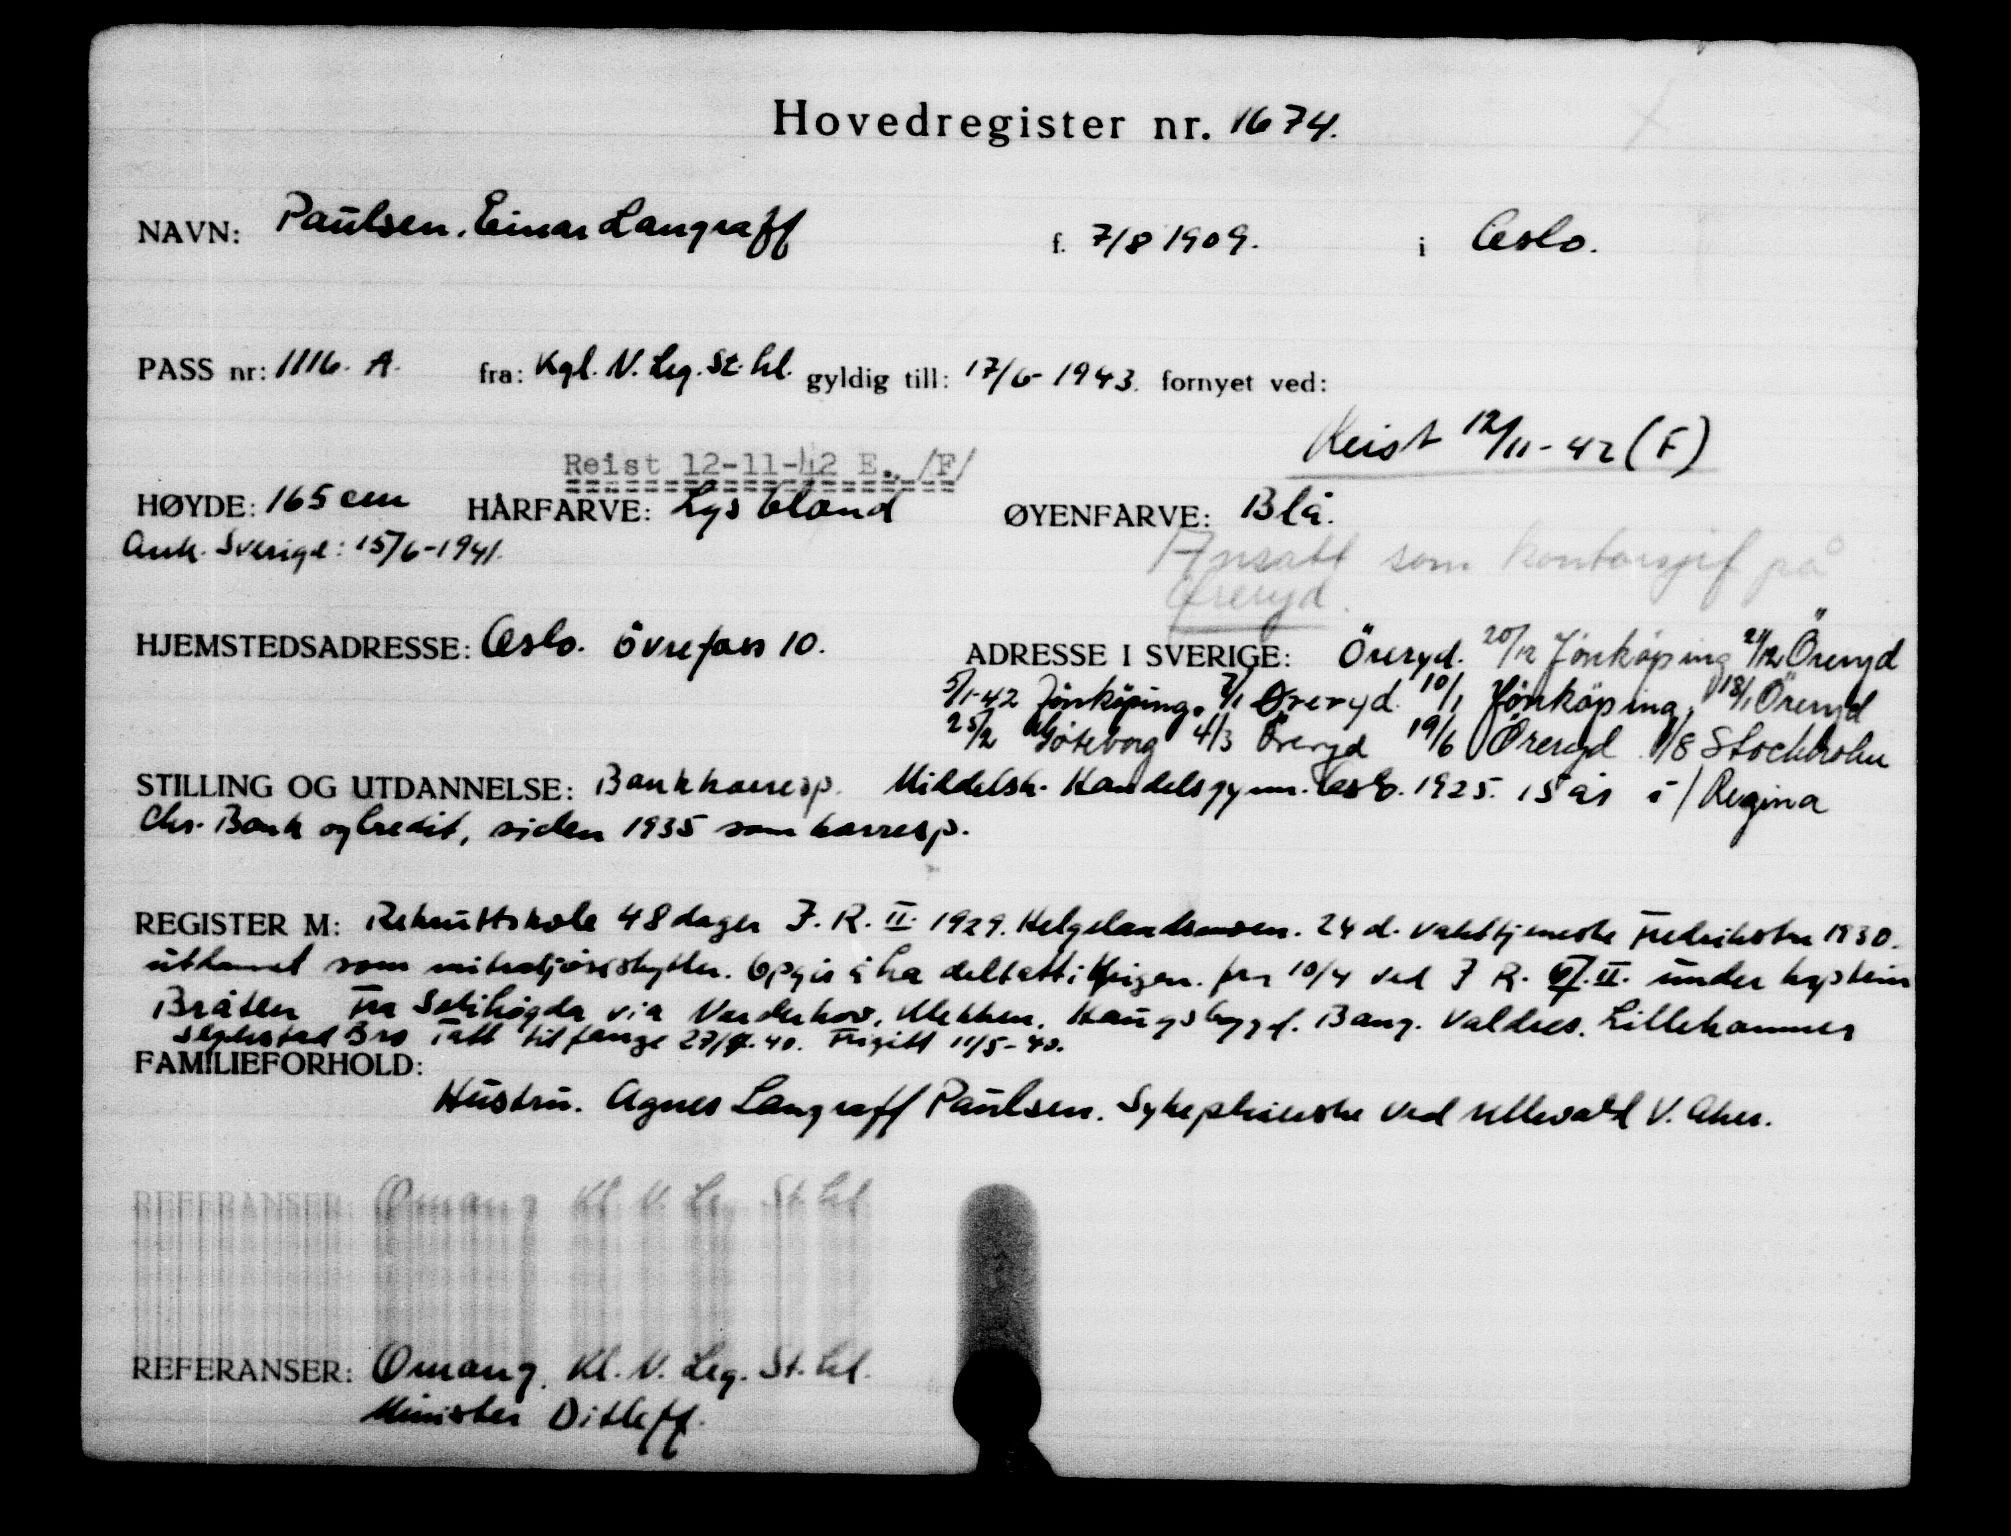 Hovedregister nr. 1674.
NAVN: Paulsen. Einar Langraff f. 7/8 1909. i Oslo.
PASS nr: 1116. A. fra: Kgl. N. Leg. St. hl. gyldig till: 17/6- 1943. fornyet ved:
Reist 12/11- 42 (F)
Reist 12-11-42 E. /F/
HØYDE: 165 cm HÅRFARVE: Lys blond ØYENFARVE: Blå.
Ank. Sverige: 15/6-1941.
Ansatt som kontorsjef på
Öreryd.
HJEMSTEDSADRESSE: Oslo. Övrefoss 10. ADRESSE I SVERIGE: Öreryd. 20/12 Jönköping 21/12 Öreryd
5/1-42 Jönköping. 7/1 Öreryd. 10/1 Jönköping, 18/1 Öreryd
25/2 Göteborg 4/3 Öreryd 19/6 Öreryd 1/8 Stockholm
STILLING OG UTDANNELSE: Bankkorresp. Middelsk. Handelsgymn. Oslo. 1925. 15 år i / Regina
Chr. Bank og Credit, siden 1935 som korresp.
REGISTER M: Rekruttskole 48 dager J. R. II. 1929. Helgelandsmoen. 24 d. vakttjeneste Fredriksten 1930.
utdannet som mitraljöseskytter. Opgir å ha deltatt i Krigen. fra 10/4 ved J R. II. under kaptein
Bråten Fra Sollihøgda via Norderhov, Haugsbygd. Bang. Valdres. Lillehammer
Bro Tatt til fange 27/4.40. Frigitt 11/5-40.
FAMILIEFORHOLD:
Hustru. Agnes Langraff Paulsen. Sykepleierske ved Ullevald V. Aker.
REFERANSER: Omang Kl. N. Leg. St. hl
REFERANSER: Omang. Kl. N. Leg. St. hl.
Minister Ditleff.